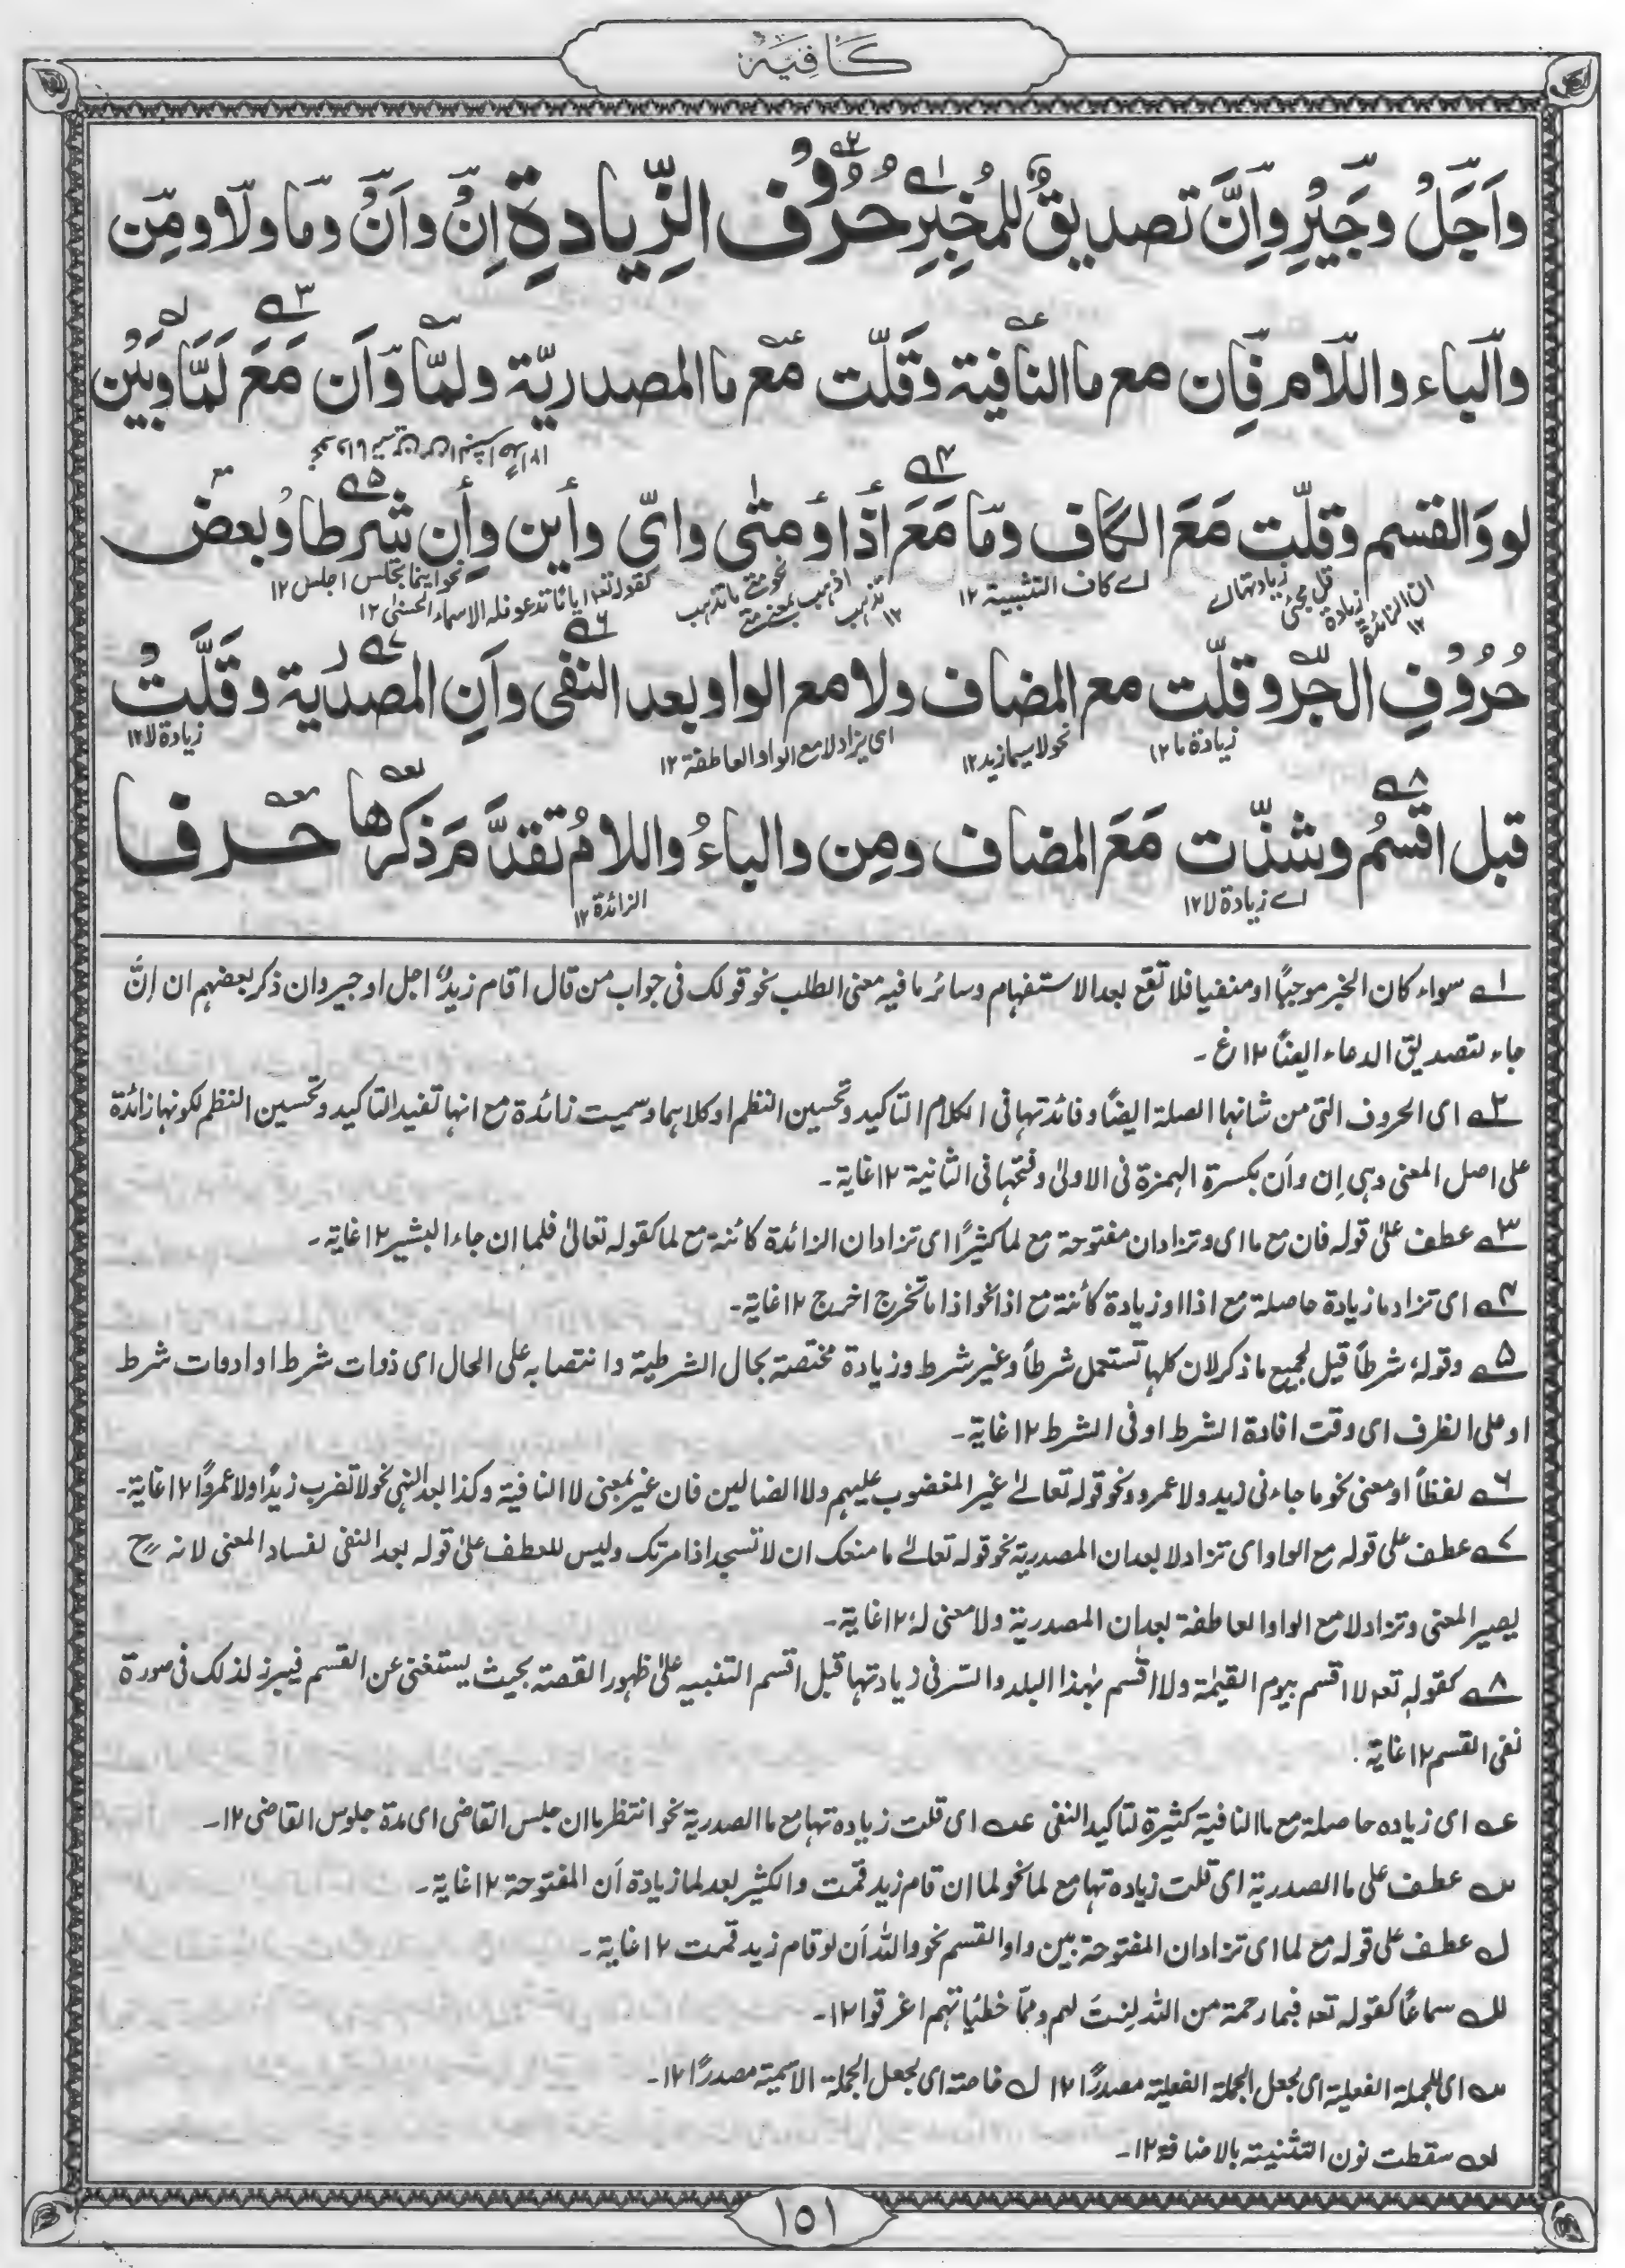 كافية
وَاَجَلْ وجَيْرِ وإِنَّ تصديقٌ للمُخبِرِ حُرُوْف الزِّيادةِ اِنْ واَنْ وما ولا ومِن
والباء واللام فَاِن مع ما النافية وقَلّت مع ما المصدريّة ولمّا وَاَن مَعَ لَمَّا وبَيْن
لو وَالقسم وقلّت مَعَ الكاف وما مَعَ اذا وَمتٰى واىّ وأين وإن شرطا وبعض
ان الزائدة ١٢
اے كاف التشبيه ١٢
نحو اينما تجلس اجلس ١٢
حُرُوْفِ الجرّ وقلّت مع المضاف ولا مع الواو بعد النفى واَنِ المصدرية وقَلَّتْ
زيادة ما ١٢
نحو لا سيما زيد ١٢
اى يزاد لا مع الواو العاطفة ١٢
زيادة لا ١٢
قبل اقسمُ وشذّت مَعَ المضاف ومِن والباءُ واللامُ تقدَّمَ ذكرها حرفا
اے زيادة لا ١٢
الزائدة ١٢
١ے سواء كان الخبر موجبًا او منفيا فلا تقع بعد الاستفهام وسائر ما فيه معنى الطلب نحو قولك فى جواب من قال اقام زيدٌ اجل او جير وان ذكر بعضهم ان اِنَّ
جاء لتصديق الدعاء ايضًا ١٢ غ ـ
٢ے اى الحروف التى من شانها الصلة ايضًا وفائدتها فى الكلام التاكيد وتحسين النظم او كلاهما وسميت زائدة مع انها تفيد التاكيد وتحسين النظم لكونها زائدة
على اصل المعنى وهى اِن واَن بكسرة الهمزة فى الاولى وفتحها فى الثانية ١٢ غاية ـ
٣ے عطف علٰى قوله فان مع ما اى وتزاد ان مفتوحة مع لما كثيرًا اى تزاد ان الزائدة كائنة مع لما كقوله تعالىٰ فلما ان جاء البشير ١٢ غاية ـ
٤ے اى تزاد ما زيادة حاصلة مع اذا او زيادة كائنة مع اذا نحو اذا ما تخرج اخرج ١٢ غاية ـ
٥ے وقولهٗ شرطاً قيل لجميع ما ذكر لان كلها تستعمل شرطاً وغير شرط وزيادة مختصة بحال الشرطية وانتصابه على الحال اى ذوات شرط او ادوات شرط
او على الظرف اى وقت افادة الشرط او فى الشرط ١٢ غاية ـ
٦ے لفظاً او معنى نحو ما جاءنى زيد ولا عمرو ونحو قوله تعالےٰ غير المغضوب عليهم ولا الضالين فان غير بمعنى لا النافية وكذا بعد النهى نحو لا تضرب زيدًا ولا عمروًا ١٢ غاية ـ
٧ے عطف على قوله مع الواو اى تزاد لا بعد ان المصدرية نحو قوله تعالےٰ ما منعك ان لا تسجد اذ امرتك وليس للعطف علٰى قوله بعد النفى لفساد المعنى لانه ح
يصير المعنى وتزاد لا مع الواو العاطفة بعد ان المصدرية ولا معنى لهٗ ١٢ غاية ـ
٨ے كقوله تعه لا اقسم بيوم القيٰمة ولا اقسم بهٰذا البلد والسر فى زيادتها قبل اقسم التنبيه علٰى ظهور القصة بحيث يستغنى عن القسم فيبرز لذلك فى صورة
نفى القسم ١٢ غاية .
عه اى زياده حاصلة مع ما النافية كثيرة لتاكيد النفى عه اى قلت زيادة تها مع ما الصدرية نحو انتظر ما ان جلس القاضى اى مدة جلوس القاضى ١٢ ـ
سه عطف على ما الصدرية اى قلت زيادة تها مع لما نحو لما ان قام زيد قمت والكثير بعد لما زيادة اَن المفتوحة ١٢ غاية ـ
له عطف على قوله مع لما اى تزاد ان المفتوحة بين واو القسم نحو والله اَن لو قام زيد قمت ١٢ غاية ـ
لله سماعًا كقوله تعه فبما رحمة من الله لِنتَ لهم وممّا خطيٰاتهم اغرقوا ١٢ ـ
سه اى للجملة الفعلية اى لجعل الجملة الفعلية مصدرًا ١٢ له خاصة اى لجعل الجملة الاسمية مصدرًا ١٢ ـ
لعه سقطت نون التثنية بالاضافة ١٢ ـ
١٥١